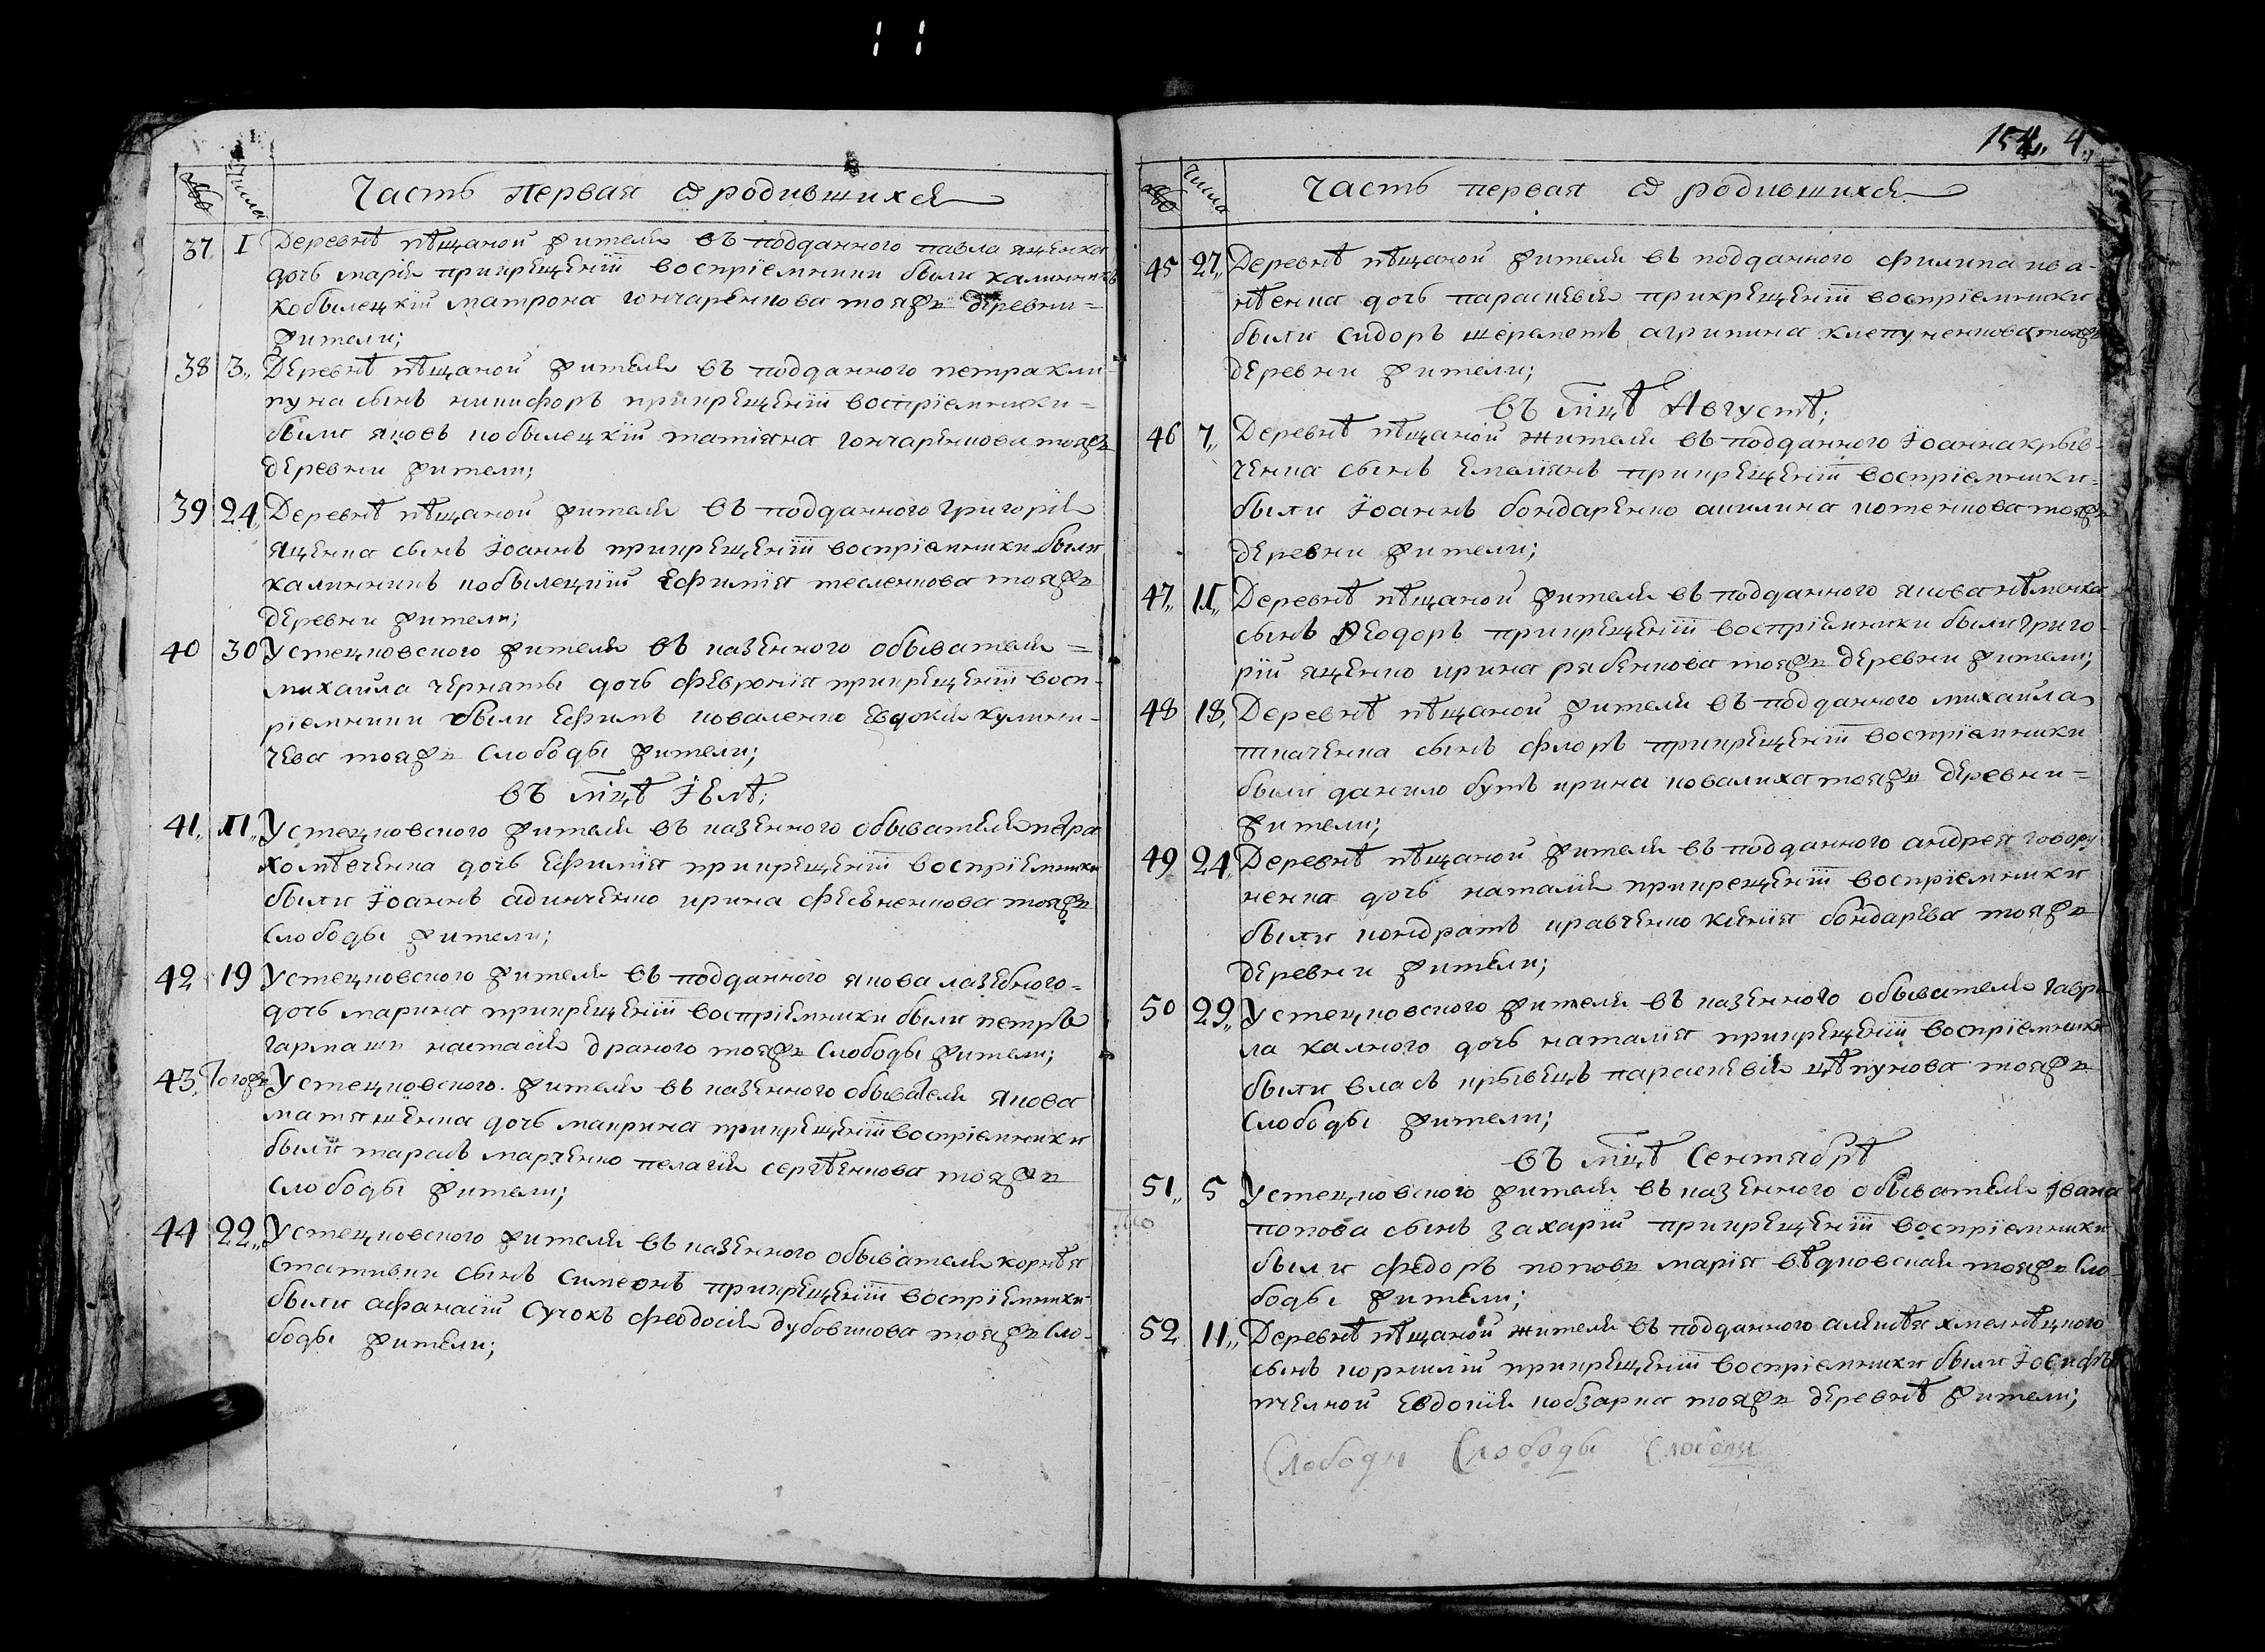 числа
Часть первая ѿ родившихся
37 1 Деревнѣ пѣщаной жителя въ подданного павла яценка
дочь марія прикрещеніи воспріемники были калинникъ
кобылецкїй матрона гончаренкова тояжъ деревни=
жители;
38 3,, Деревнѣ пѣщаной жителя въ подданного петра кли-
пуна сынъ никифоръ прикрещеніи воспріемники=
были яковъ кобылецкїй татіяна гончаренкова тояжъ
деревни жители;
39 24,, Деревнѣ пѣщаной жителя въ подданного григорія
яценка сынъ Іоаннъ прикрещеніи воспріемники были
калинникъ кобылецкїй ефимія тесленкова тояжъ
деревни жители;
40 30 Устецковского жителя въ казенного обывателя=
михаила черняты дочь февронія прикрещеніи восп-
ріемники были ефимъ коваленко евдокія кулини-
чева тояжъ слободы жители;
въ мцѣ Іюлѣ;
41,, 11,, Устецковского жителя въ казенного обывателя петра
хомѣченка дочь ефимія прикрещеніи воспріемники
были Іоаннъ адинченко ирина февненкова тояжъ
слободы жители;
42 19 Устецковского жителя въ подданного якова лазебного=
дочь марина прикрещеніи воспріемники были петръ
гармаш настасія драного тояжъ слободы жители;
43,, Тогожъ Устецковского жителя въ казенного обывателя якова
матяшенка дочь маврина прикрещеніи воспріемники
были тарасъ марченко пелагія сергѣенкова тояжъ
слободы жители;
44 22,, Устецковского жителя въ казенного обывателя корнѣя
стативки сынъ симеонъ прикрещеніи воспріемники
были афанасій сучокъ феодосія дубовикова тояжъ сло-
боды жители;
4,,
числа
Часть первая ѿ родившихся
45 27,, Деревнѣ пѣщаной жителя въ подданного филипа ива-
нѣенка дочь параскевія прикрещеніи воспріемники
были сидоръ шереметъ агрипина клепуненкова тояжъ
деревни жители;
въ мцѣ Августѣ;
46 7,, Деревнѣ пѣщаной жителя въ подданного Іоанна крыв-
ченка сынъ емеліянъ прикрещеніи воспріемники=
были Іоаннъ бондаренко акилина котенкова тояжъ
деревни жители;
47,, 11,, Деревнѣ пѣщаной жителя въ подданного якова нѣменка
сынъ Феодоръ прикрещеніи воспріемники были григо-
рій яценко ирина рябенкова тояжъ деревни жители;
48 18,, Деревнѣ пѣщаной жителя въ подданного михаила
ткаченка сынъ флоръ прикрещеніи воспріемники
были данило бутъ ирина ковалиха тояжъ деревни=
жители;
49 24,, Деревнѣ пѣщаной жителя въ подданного андрея говору
ненка дочь наталія прикрещеніи воспріемники
были кондратъ кравченко ксенія бондарева тояжъ
деревни жители;
50 29,, Устецковского жителя въ казенного обывателя гаври-
ла калного дочь наталія прикрещеніи воспріемники
были власъ крывецъ параскевія цѣпукова тояжъ
слободы жители;
въ мцѣ Сентябрѣ
51,, 5 Устецковского жителя въ казенного обывателя Івана
попова сынъ захарій прикрещеніи воспріемники
были федоръ поповъ марія вѣдковская тояжъ сло-
боды жители;
52 11,, Деревнѣ пѣщаной жителя въ подданного алексѣя хмелнѣцкого
сынъ корнилій прикрещеніи воспріемники были Іосифъ
пчелной евдокія кобзарка тояжъ деревнѣ жители;
Слободы Слободы Слободы